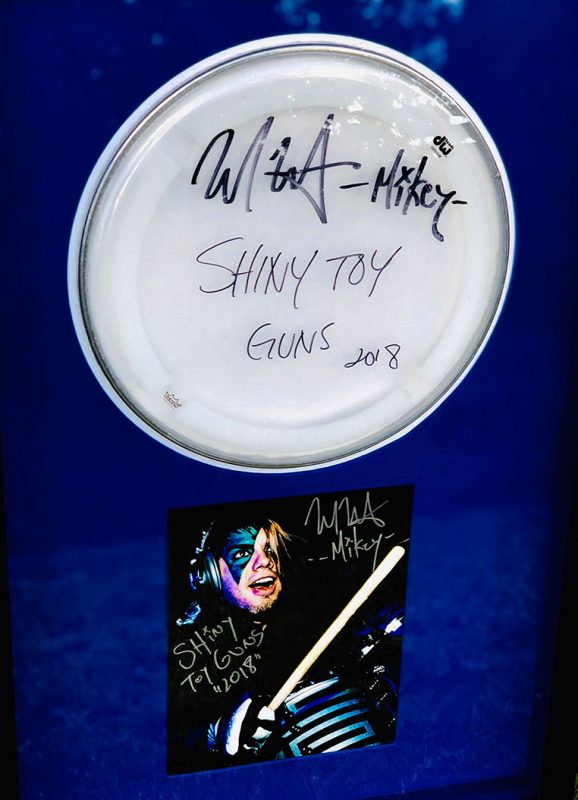 -Mikey-
dw
SHINY TOY
GUNS 2018
-Mikey-
SHiNY
TOY GUNS
"2018"